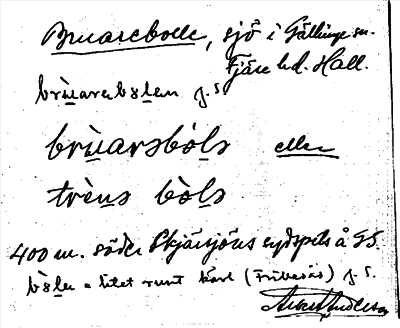 Bruarebolle, sjö i Gällinge sn.
Fjäre hd. Hall.
brùarebølen g. s.
brùarsbòls eller
trèns bòls
400 m. söder Skjärsjöns sydspets å GS.
bøle = litet runt kärr (Frillesås) g. s.